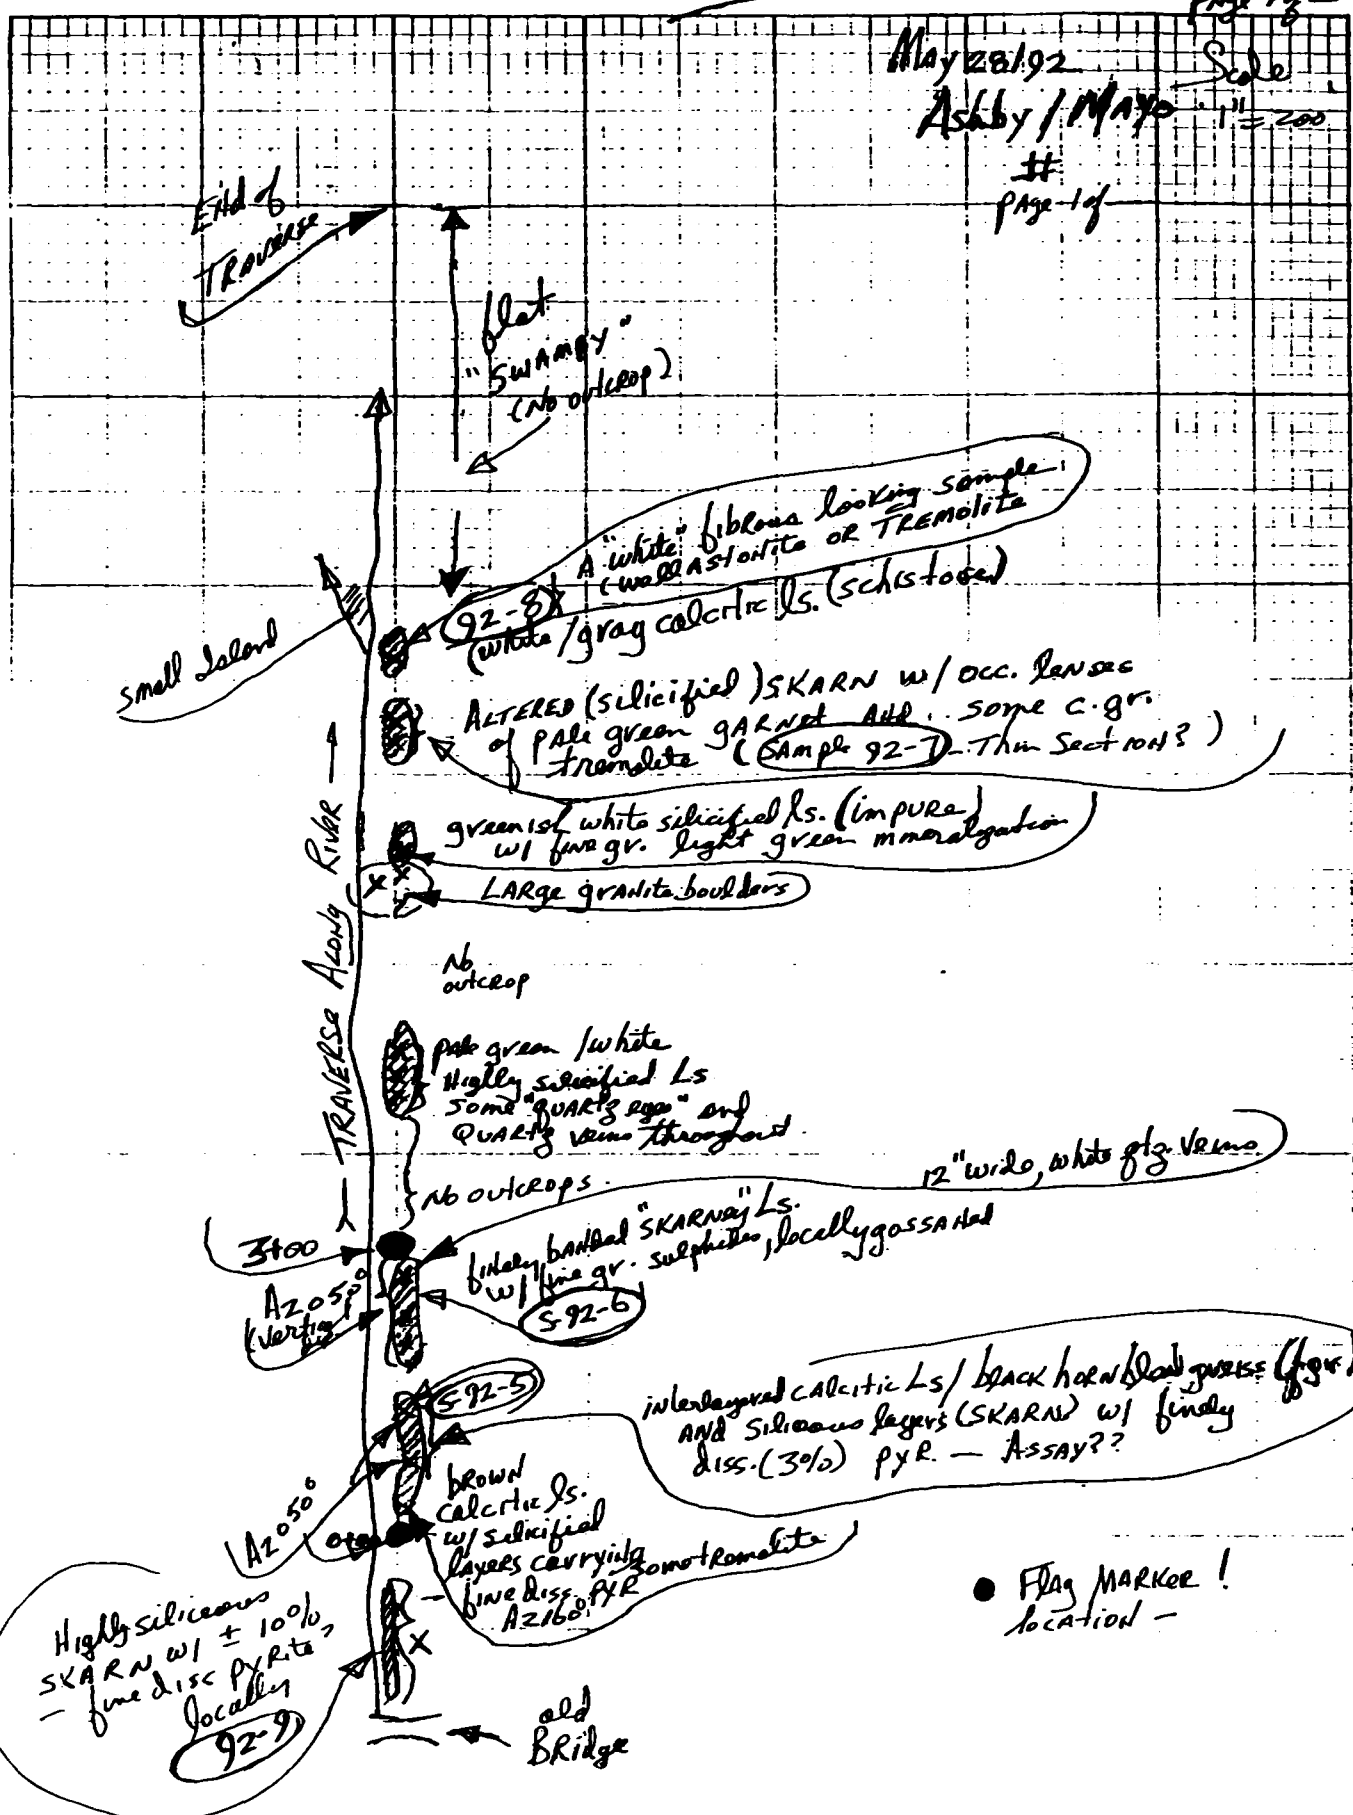 May 28/92
Scale
Ashby / Mayo 1" = 200
#
page 1 of
End of
TRAVERSE
flat
"SWAMPY"
(No outcrop)
A "white" fibrous looking sample
(wollastonite OR TREMOLITE
92-8
(white/gray calcitic ls. (schistose)
small Island
ALTERED (silicified) SKARN w/ occ. lenses
of pale green GARNET AND some c.gr.
tremolite (SAMple 92-7 - Thin Section?)
greenish white silicified ls. (impure)
w/ fine gr. light green mineralization
LARge gRANite boulders
No
outcrop
TRAVERSE ALONG River
pale green / white
Highly silicified Ls
some "QUARTZ eyes" and
QUARTZ veins throughout.
No outcrops.
12" wide, white qtz. veins
3+00
finely banded "SKARNey" Ls.
w/ fine gr. sulphides, locally gossaned
AZ 050°
(vertical)
S-92-6
S-92-5
interlayered calcitic Ls / black hornblend gneiss (f.gr.)
AND Siliceous layers (SKARN) w/ finely
diss. (3%) PYR. — ASSAY??
AZ 050°
0+00
brown
calcitic ls.
w/ silicified
layers carrying
fine diss. PYR
AZ 160°
some tremolite
Highly siliceous
SKARN w/ ± 10%
— fine diss PYRite,
locally
92-9
old
BRidge
● Flag MARKER !
location —